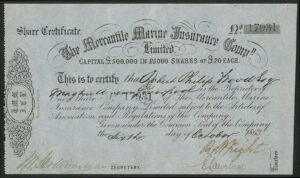 Share Certificate.
No 17931
The Mercantile Marine Insurance Compy
Limited.
CAPITAL £500,000 IN 25000 SHARES OF £20 EACH.
This is to certify that Robert Philip Wood Esq
is the Proprietor of
One Share No 17931 in The Mercantile Marine
Insurance Company Limited subject to the Articles of
Association and Regulations of the Company
Given under the Common Seal of the Company
the day of October 186
SECRETARY.